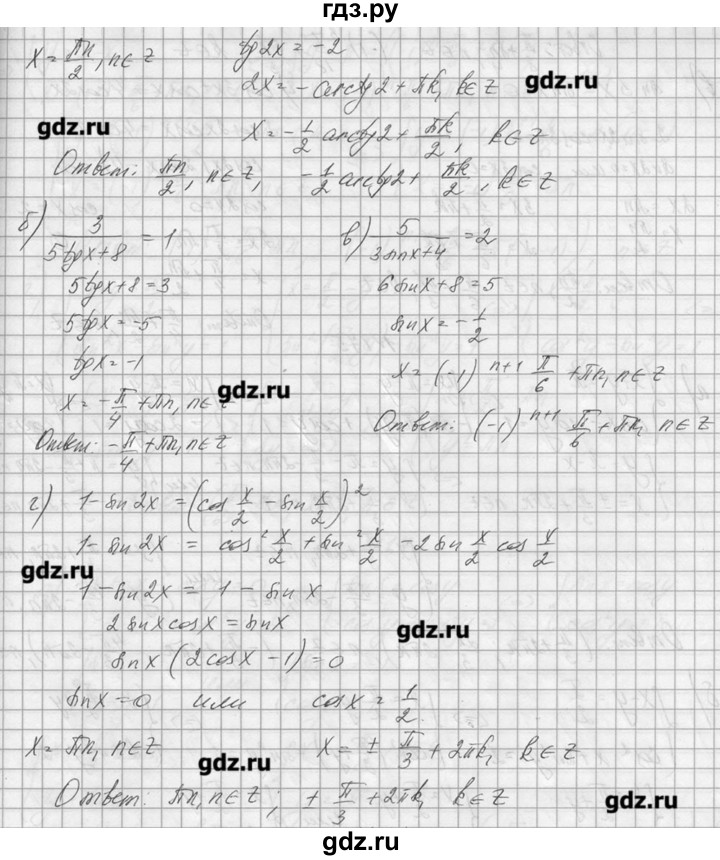 гдз.ру
x = πn/2, n∈Z    tg2x = -2
2x = -arctg2 + πk, k∈Z
gdz.ru
gdz.ru
x = -1/2 arctg2 + πk/2, k∈Z
Ответ: πn/2, n∈Z, -1/2 arctg2 + πk/2, k∈Z
б) 3/(5tgx+8) = 1    в) 5/(3sinx+4) = 2
5tgx+8=3    6sinx+8=5
5tgx=-5    sinx = -1/2
tgx=-1    x = (-1)^(n+1) π/6 + πn, n∈Z
gdz.ru
x = -π/4 + πn, n∈Z    Ответ: (-1)^(n+1) π/6 + πn, n∈Z
Ответ: -π/4 + πn, n∈Z
г) 1-sin2x = (cos x/2 - sin x/2)^2
1-sin2x = cos² x/2 + sin² x/2 - 2sin x/2 cos x/2
gdz.ru
1-sin2x = 1 - sinx
2sinxcosx = sinx
gdz.ru
sinx(2cosx - 1) = 0
sinx=0 или cosx = 1/2
x = πn, n∈Z    x = ± π/3 + 2πk, k∈Z
gdz.ru
Ответ: πn, n∈Z; ± π/3 + 2πk, k∈Z
gdz.ru
gdz.ru